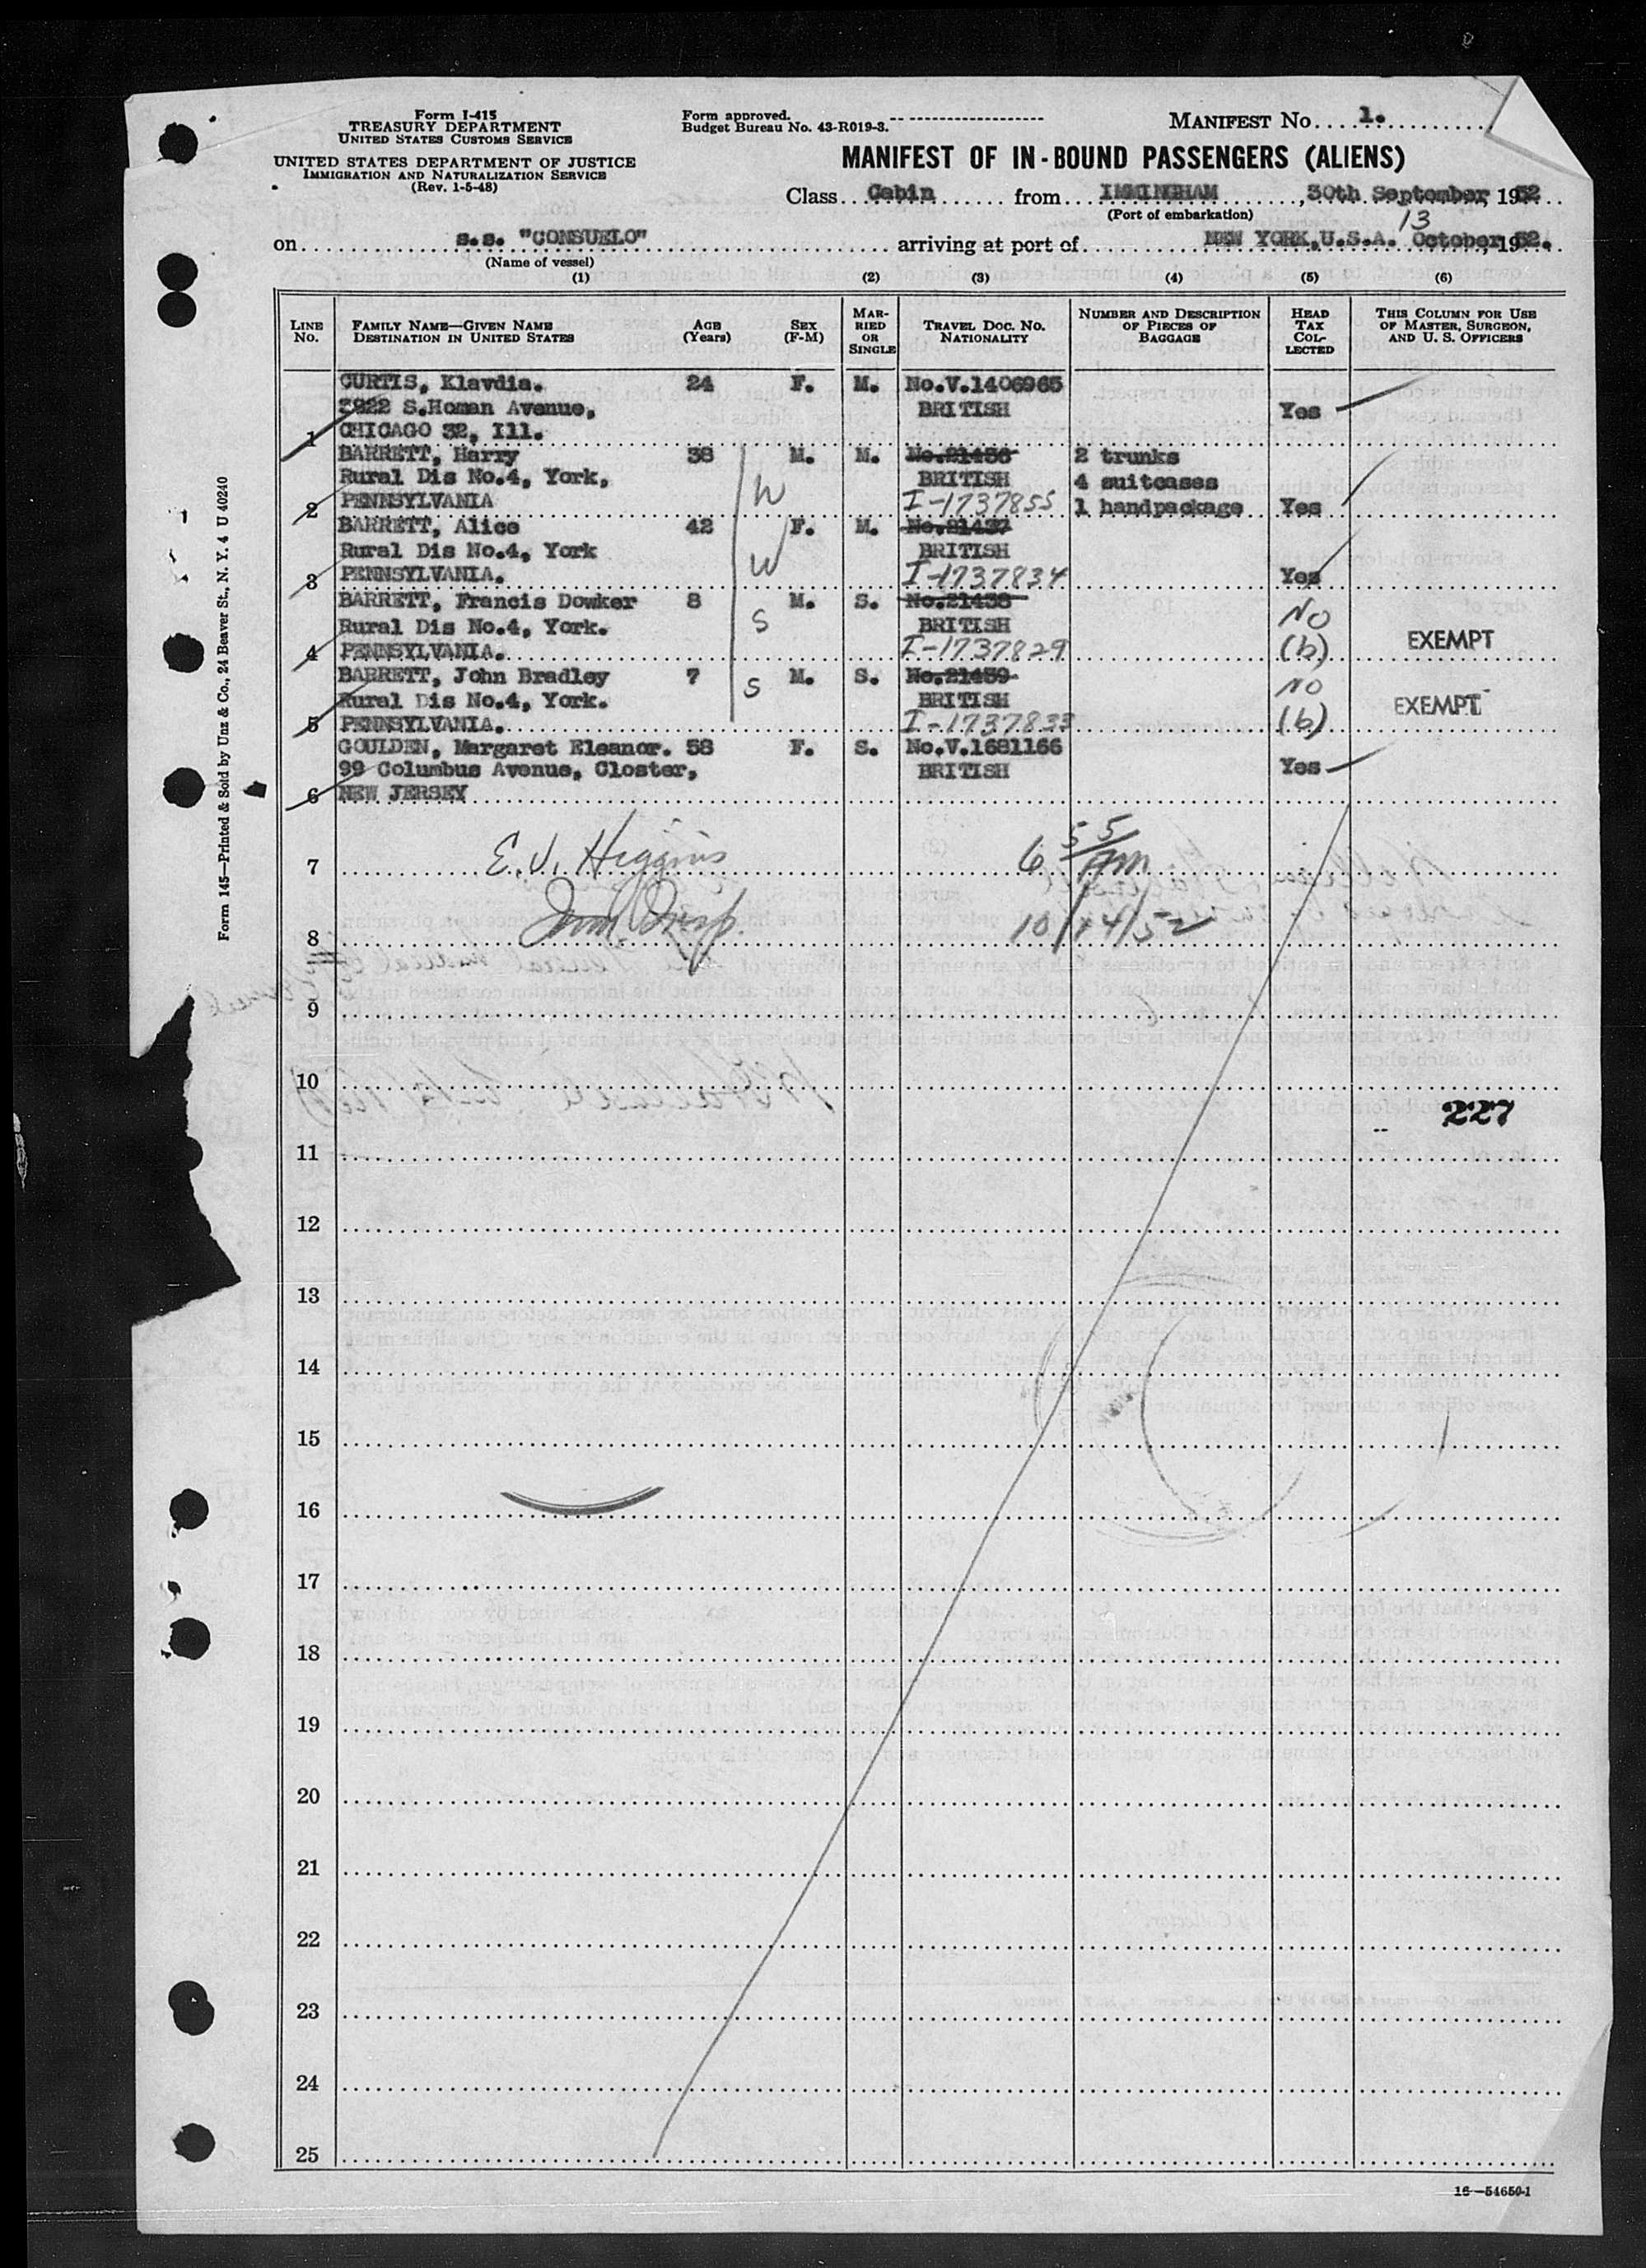 Form I-415
TREASURY DEPARTMENT
UNITED STATES CUSTOMS SERVICE
UNITED STATES DEPARTMENT OF JUSTICE
IMMIGRATION AND NATURALIZATION SERVICE
(Rev. 1-5-48)
Form approved.
Budget Bureau No. 43-R019-3.
MANIFEST No. 1.
MANIFEST OF IN-BOUND PASSENGERS (ALIENS)
Class Cabin from IMMINGHAM, 30th September, 1952
(Port of embarkation)
13
on s.s. "CONSUELO" arriving at port of NEW YORK, U.S.A. October, 1952.
(Name of vessel)
(1) (2) (3) (4) (5) (6)
LINE No. FAMILY NAME—GIVEN NAME DESTINATION IN UNITED STATES AGE (Years) SEX (F-M) MARRIED OR SINGLE TRAVEL DOC. NO. NATIONALITY NUMBER AND DESCRIPTION OF PIECES OF BAGGAGE HEAD TAX COLLECTED THIS COLUMN FOR USE OF MASTER, SURGEON, AND U. S. OFFICERS
CURTIS, Klavdia. 24 F. M. No.V.1406965
3922 S.Homan Avenue, BRITISH Yes
1 CHICAGO 32, Ill.
BARRETT, Harry 38 M. M. No.21436 2 trunks
Rural Dis No.4, York, W BRITISH 4 suitcases
2 PENNSYLVANIA I-1737855 1 handpackage Yes
BARRETT, Alice 42 F. M. No.21437
Rural Dis No.4, York W BRITISH
3 PENNSYLVANIA. I-1737834 Yes
BARRETT, Francis Dowker 8 M. S. No.21438 No
Rural Dis No.4, York. S BRITISH EXEMPT
4 PENNSYLVANIA. I-1737829 (b)
BARRETT, John Bradley 7 S M. S. No.21439 No
Rural Dis No.4, York. BRITISH EXEMPT
5 PENNSYLVANIA. I-1737833 (b)
GOULDEN, Margaret Eleanor. 58 F. S. No.V.1681166
99 Columbus Avenue, Closter, BRITISH Yes
6 NEW JERSEY
7 E.J. Higgins 6 55/AM
8 Imm. Insp. 10/14/52
9
10
227
11
12
13
14
15
16
17
18
19
20
21
22
23
24
25
16—54650-1
Form 145—Printed & Sold by Unz & Co., 24 Beaver St., N. Y. 4 U 40240